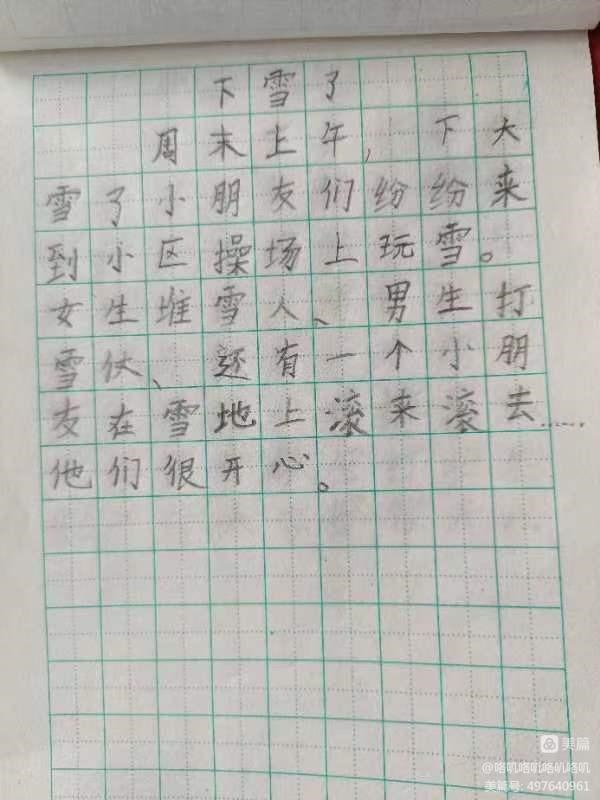 下雪了
周末上午，下大
雪了小朋友们纷纷来
到小区操场上玩雪。
女生堆雪人、男生打
雪仗、还有一个小朋
友在雪地上滚来滚去……
他们很开心。
美篇
@咯叽咯叽咯叽咯叽
美篇号: 497640961